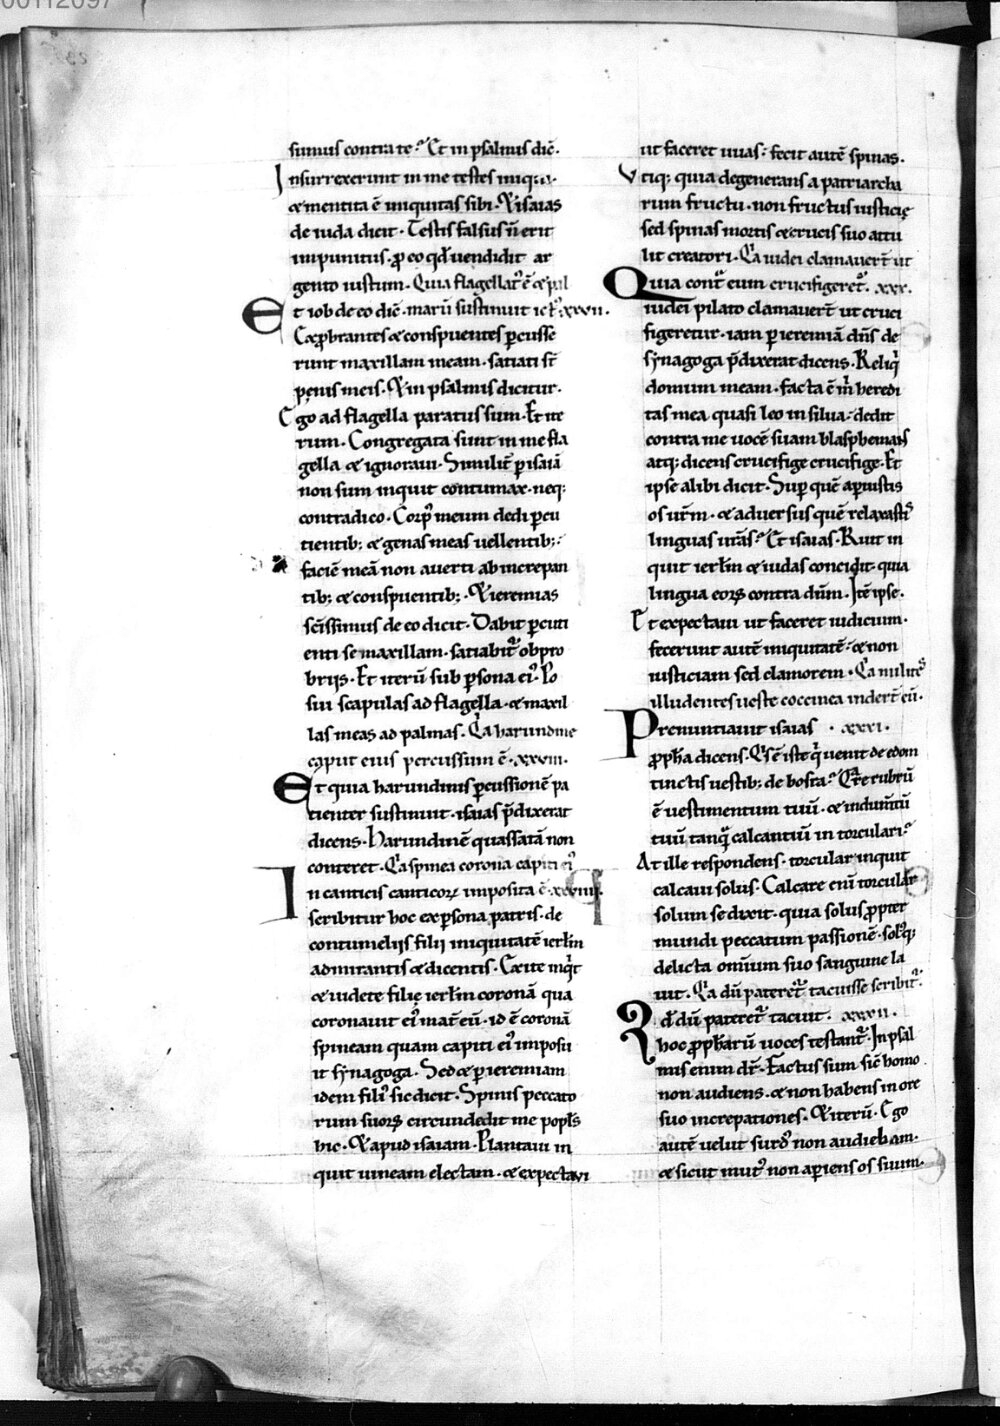 00112097
sumus contra te. Et in psalmis dic̄.
Insurrexerunt in me testes iniqui.
& mentita ē iniquitas sibi. & isaias
de iuda dicit. Testis falsus n̄ erit
inpunitus. p̱ eo qđ uendidit ar
gento iustum. Quia flagellat᷑ ē & pal
Et iob de eo dic̄. marū sustinuit ict᷒. xxvii.
Exp̱brantes & conspuentes ꝑcusse
runt maxillam meam. satiati st̄
pęnis meis. & in psalmis dicitur.
Ego ad flagella paratus sum. Et ite
rum. Congregata sunt in me fla
gella & ignoraui. Similit̄ ꝑ isaiā
non sum inquit contumax. neq;
contradico. Corp᷒ meum dedi ꝑcu
tientib; & genas meas uellentib;
faciē meā non auerti ab increpan
tib; & conspuentib;. & ieremias
sc̄issimus de eo dicit. Dabit ꝑcuti
enti se maxillam. satiabit᷑ obpro
briis. Et iterū sub ꝑsona ei᷒. Po
sui scapulas ad flagella. & maxil
las meas ad palmas. Qa harundine
caput eius percussum ē. xxviii.
Et quia harundinis ꝑcussionē pa
tienter sustinuit. isaias p̄dixerat
dicens. Harundinē quassatā non
conteret. Qa spinea corona capiti ei᷒
In canticis canticoꝝ imposita ē. xxviiii.
scribitur hoc ex ꝑsona patris. de
contumeliis filii iniquitatē ierl̄m
admirantis & dicentis. Exite inqͥt
& uidete filię ierl̄m coronā qua
coronauit eū mat̄ eū. id ē coronā
spineam quam capiti ei᷒ imposu
it synagoga. Sed & ꝑ ieremiam
idem fili᷒ sic dicit. Spinis peccato
rum suoꝝ circundedit me popl̄s
hic. & apud isaiam. Plantaui in
quit uineam electam. & expectaui
ut faceret uuas. fecit autē spinas.
Vtiq; quia degenerans a patriarcha
rum fructu. non fructus iusticię
sed spinas mortis & crucis suo attu
lit creatori. Qa iudei clamauer̄t ut
Quia cont᷑ eum crucifigeret᷑. xxx.
iudei pilato clamauer̄t ut cruci
figeretur. iam ꝑ ieremiā dn̄s de
synagoga p̄dixerat dicens. Reliqͥ
domum meam. facta ē m̄ heredi
tas mea quasi leo in silua. dedit
contra me uocē suam blasphemans
atq; dicens crucifige crucifige. Et
ipse alibi dicit. Sup̱ quē aperuistis
os ur̄m. & aduersus quē relaxastis
linguas ur̄as. Et isaias. Ruit in
quit ierl̄m & iudas concidit. quia
lingua eorꝝ contra dn̄m. Itē ipse.
Et expectaui ut faceret iudicium.
fecerunt autē iniquitatē. & non
iusticiam sed clamorem. Qa milites
illudentes ueste coccinea inder̄t eū.
Prenuntiauit isaias. xxxi.
p̱pha dicens. Qͥs ē iste qͥ uenit de edom
tinctis uestib; de bosra. Qͣre rubrū
ē uestimentum tuū. & indumtū
tuū tanqͣ calcantiū in torculari.
At ille respondens. torcular inquit
calcaui solus. Calcare enī torcular
solum se dixit. quia solus p̱pter
mundi peccatum passionē. solusq;
delicta omnium suo sanguine la
uit. Qa dū pateret᷑ tacuisse scribit᷑.
Qđ dū pateret᷑ tacuit. xxxii.
hoc p̱phetarū uoces testant᷑. In psal
mis enim dr̄. Factus sum sic̄ homo
non audiens. & non habens in ore
suo increpationes. & iterū. Ego
autē uelut surd᷒ non audiebam.
& sicut mut᷒ non aperiens os suum.